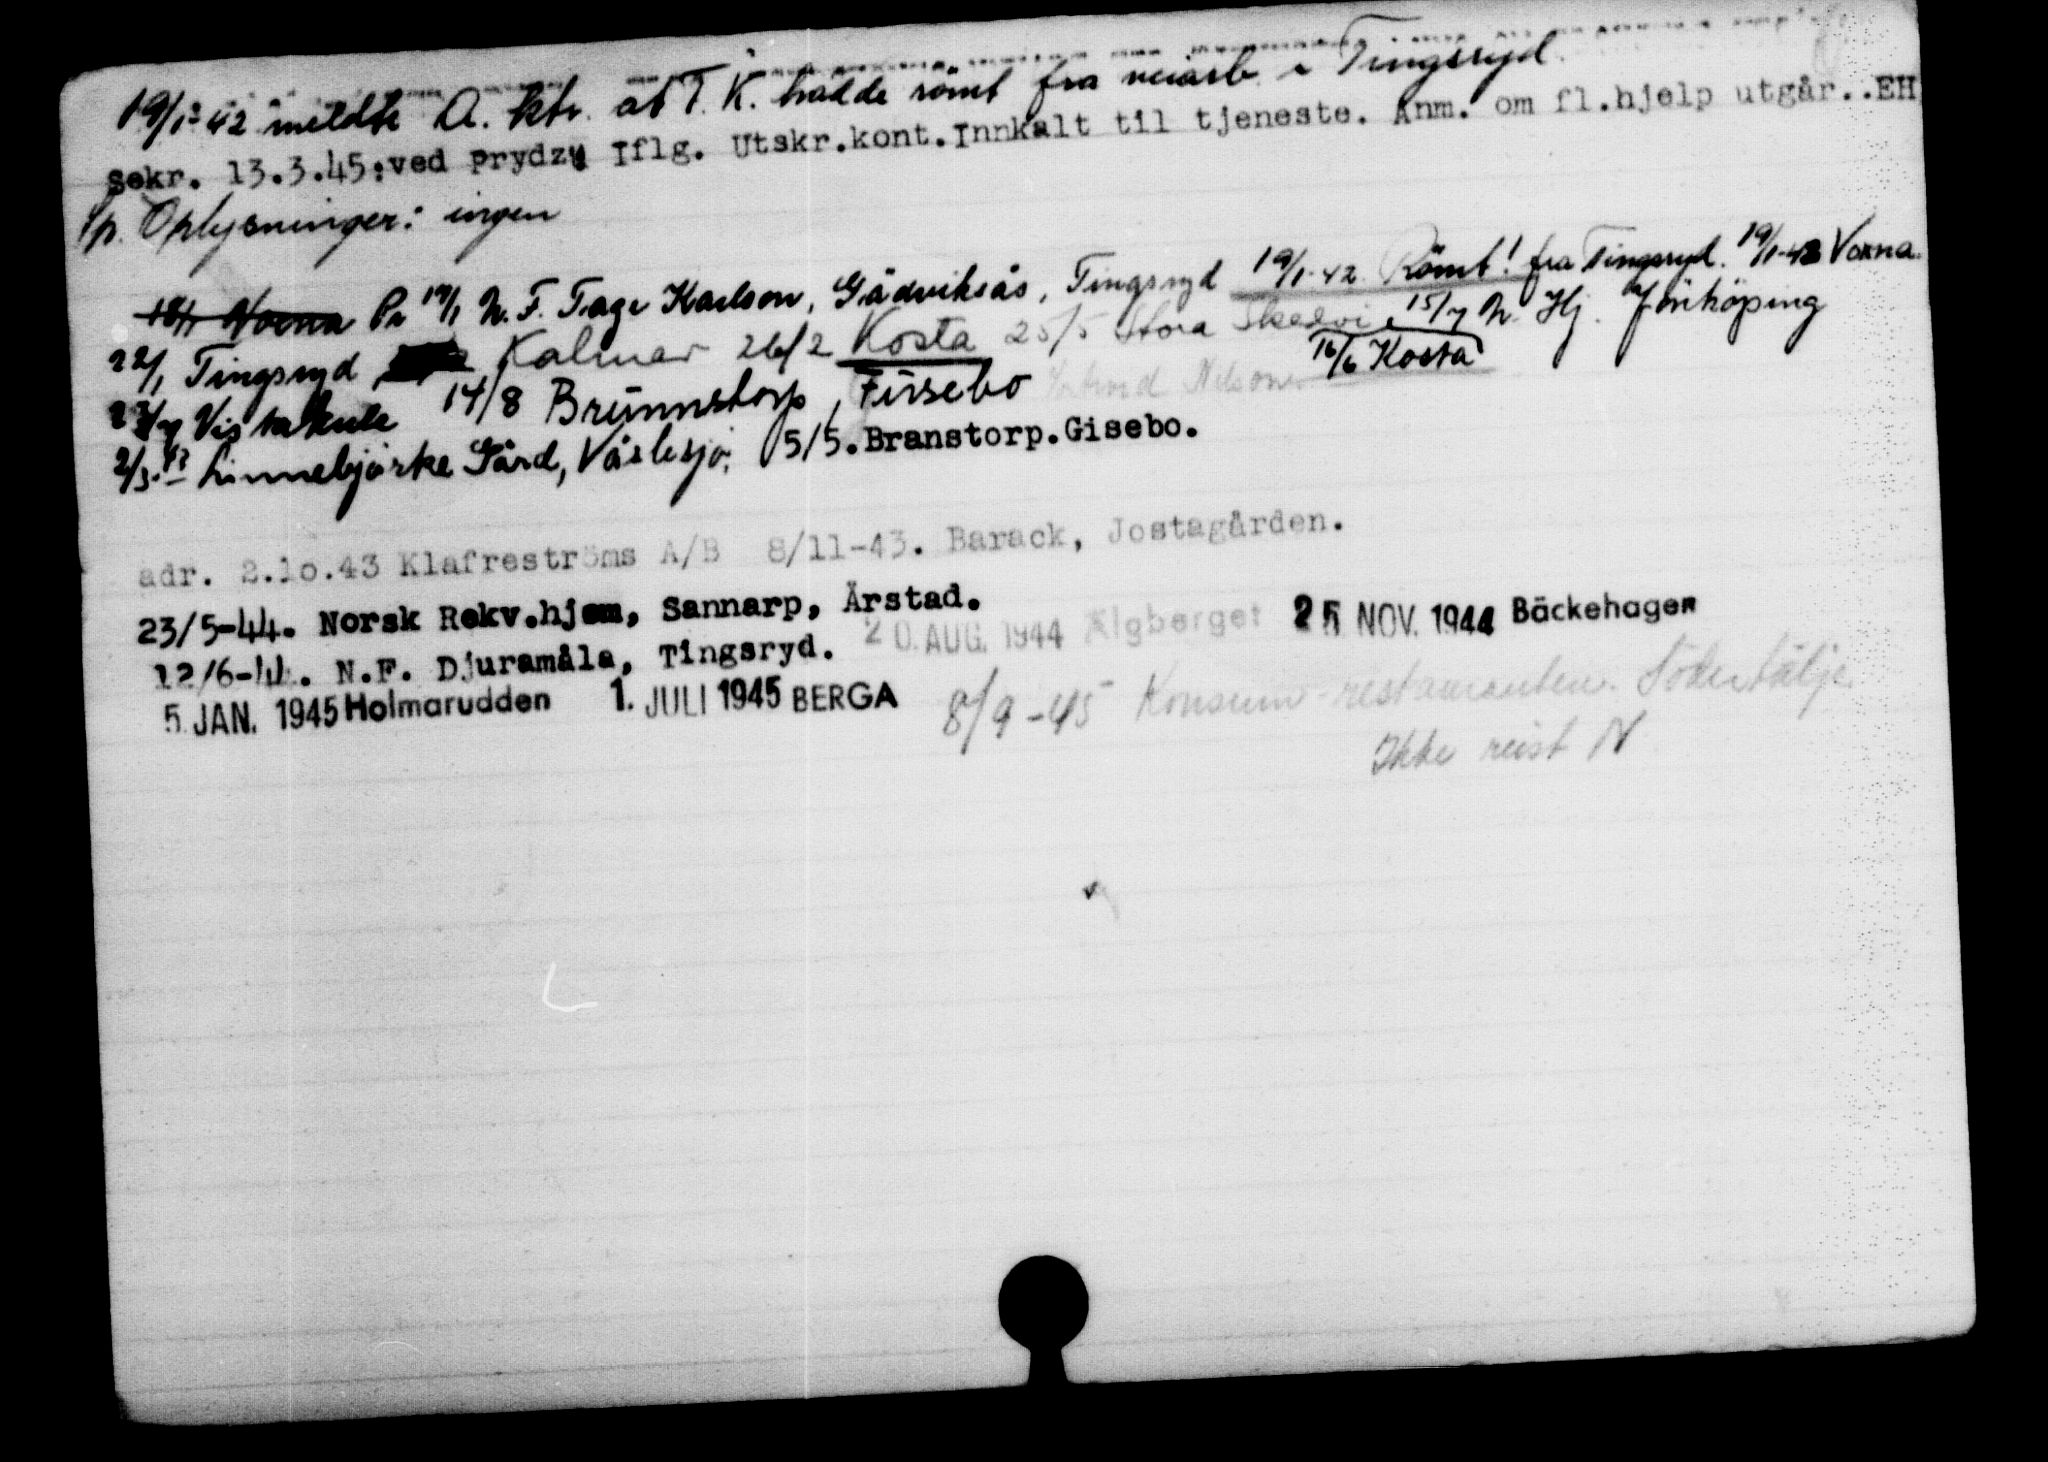 19/1-42 meldte A. ktr. at T. K. hadde römt fra veiarb. i Tingsryd.
Sekr. 13.3.45:ved Prydz: Iflg. Utskr.kont.Innkalt til tjeneste. Anm. om fl.hjelp utgår..EH
Sp. Oplysninger: ingen
18/1 Voxna Pr 19/1 N. F. Tage Karlson, Gådviksås, Tingsryd 19/1-42 Römt! fra Tingsryd. 19/1-42 Voxna.
22/1 Tingsryd Kalmar 26/2 Kosta 25/5 Stora Skedvi, 15/7 N. Hj. Jönköping
16/6 Kosta
23/7 Vistakule 14/8 Brunnstorp, Nelson
2/3.43 Linnebjörke Gård, 5/5.Branstorp.Gisebo.
adr. 2.10.43 Klafreströms A/B 8/11-43. Barack, Jostagården.
23/5-44. Norsk Rekv.hjem, Sannarp, Årstad.
20. AUG. 1944 Älgberget 25 NOV. 1944 Bäckehagen
12/6-44. N.F. Djuramåla, Tingsryd.
5. JAN. 1945 Holmarudden 1. JULI 1945 BERGA
8/9-45 Konsum-restauranten. Södertälje
Ikke reist N